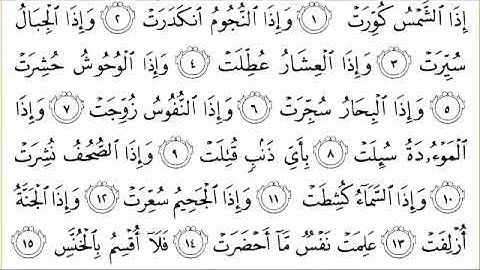 إِذَا الشَّمْسُ كُوِّرَتْ ١ وَإِذَا النُّجُومُ انكَدَرَتْ ٢ وَإِذَا الْجِبَالُ
سُيِّرَتْ ٣ وَإِذَا الْعِشَارُ عُطِّلَتْ ٤ وَإِذَا الْوُحُوشُ حُشِرَتْ
٥ وَإِذَا الْبِحَارُ سُجِّرَتْ ٦ وَإِذَا النُّفُوسُ زُوِّجَتْ ٧ وَإِذَا
الْمَوْءُدَةُ سُئِلَتْ ٨ بِأَيِّ ذَنۢبٍ قُتِلَتْ ٩ وَإِذَا الصُّحُفُ نُشِرَتْ
١٠ وَإِذَا السَّمَآءُ كُشِطَتْ ١١ وَإِذَا الْجَحِيمُ سُعِّرَتْ ١٢ وَإِذَا الْجَنَّةُ
أُزْلِفَتْ ١٣ عَلِمَتْ نَفْسٌ مَّآ أَحْضَرَتْ ١٤ فَلَآ أُقْسِمُ بِالْخُنَّسِ ١٥